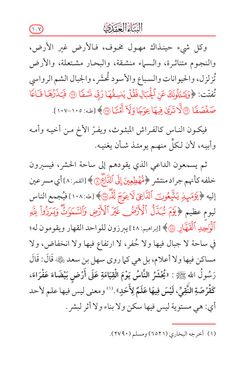 البناء العقدي
١٠٧
وكل شيء حينذاك مهول مخوف، فالأرض غير الأرض،
والنجوم متناثرة، والسماء منشقة، والبحار مشتعلة، والأرض
تُزلزل، والحيوانات والسباع والأسود تُحشر، والجبال الشم الرواسي
تفتت: ﴿وَيَسْـَٔلُونَكَ عَنِ الْجِبَالِ فَقُلْ يَنسِفُهَا رَبِّي نَسْفًا ۝ فَيَذَرُهَا قَاعًا
صَفْصَفًا ۝ لَّا تَرَىٰ فِيهَا عِوَجًا وَلَآ أَمْتًا ۝﴾ [طه: ١٠٥-١٠٧].
فيكون الناس كالفراش المبثوث، ويفرّ الأخ من أخيه وأمه
وأبيه، لأن لكلٍّ منهم يومئذ شأن يغنيه.
ثم يسمعون الداعي الذي يقودهم إلى ساحة الحشر، فيسيرون
خلفه كأنهم جراد منتشر ﴿مُّهْطِعِينَ إِلَى الدَّاعِ﴾ [القمر: ٨] أي مسرعين
إليه ﴿يَوْمَئِذٍ يَتَّبِعُونَ الدَّاعِيَ لَا عِوَجَ لَهُ﴾ [طه: ١٠٨] فيُجمع الناس
ليوم عظيم ﴿يَوْمَ تُبَدَّلُ الْأَرْضُ غَيْرَ الْأَرْضِ وَالسَّمَٰوَٰتُ وَبَرَزُوا لِلَّهِ
الْوَٰحِدِ الْقَهَّارِ ۝﴾ [إبراهيم: ٤٨] يبرزون للواحد القهار ويقومون له؛
في ساحة لا جبال فيها ولا حُفر، لا ارتفاع فيها ولا انخفاض، ولا
مساكن فيها ولا أعلام، بل هي كما روى سهل بن سعد ﵁ قال: قال
رسول الله ﷺ: «يُحْشَرُ النَّاسُ يَوْمَ الْقِيَامَةِ عَلَى أَرْضٍ بَيْضَاءَ عَفْرَاءَ،
كَقُرْصَةِ النَّقِيِّ، لَيْسَ فِيهَا عَلَمٌ لِأَحَدٍ».(١) ومعنى ليس فيها علم لأحد
أي: هي مستوية ليس فيها سكن ولا بناء ولا أثر لبشر.
(١) أخرجه البخاري (٦٥٢١) ومسلم (٢٧٩٠).